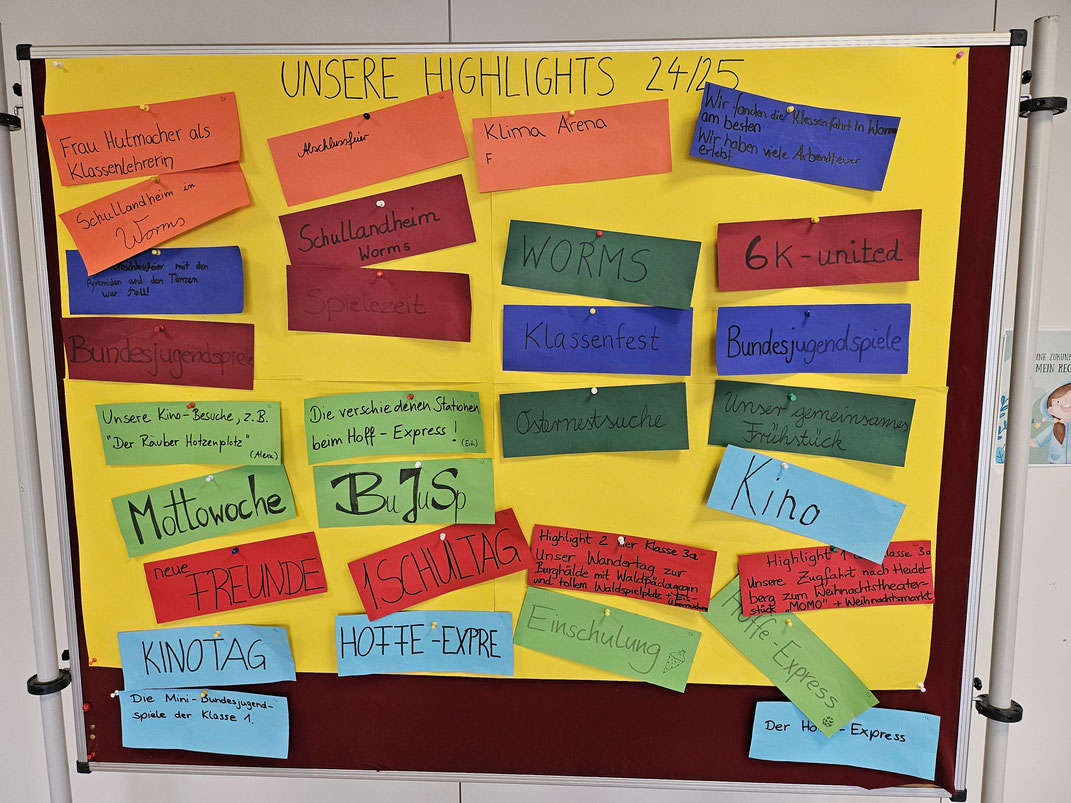 UNSERE HIGHLIGHTS 24/25
Frau Hutmacher als
Klassenlehrerin
Abschlussfeier
Klima Arena
F
Wir fanden die Klassenfahrt In Worms
am besten
Wir haben viele Arbendteuer
erlebt
Schullandheim in
Worms
Schullandheim
Worms
WORMS
6K-united
mit den
Pyramiden und den Tänzen
war toll!
Spielezeit
Klassenfest
Bundesjugendspiele
Bundesjugendspiele
Unsere Kino-Besuche, z.B.
"Der Räuber Hotzenplotz"
(Alexa)
Die verschiedenen Stationen
beim Hoff-Express!
Osternestsuche
Unser gemeinsames
Frühstück
Mottowoche
BuJuSp
Kino
neue
FREUNDE
1.SCHULTAG
Highlight 2 der Klasse 3a
Unser Wandertag zur
Burghälde mit Waldpädagogin
und tollem Waldspielplatz + Eis-
überraschung
Highlight 1 der Klasse 3a
Unsere Zugfahrt nach Heidel-
berg zum Weihnachtstheater-
stück "MOMO" + Weihnachtsmarkt
KINOTAG
HOFFE-EXPRE
Einschulung
Hoffe Express
Die Mini-Bundesjugend-
spiele der Klasse 1.
Der Hoff-Express
INE ZUKUN
MEIN REC